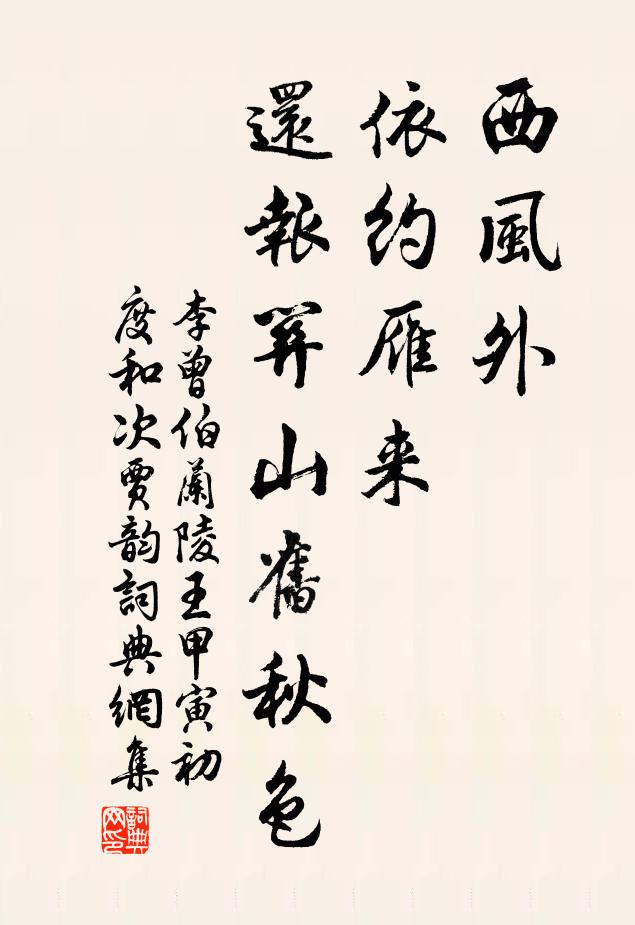 西風外
依約雁来
還報關山舊秋色
李曾伯蘭陵王甲寅初
度和次賈韵詞典網集
詞典網印